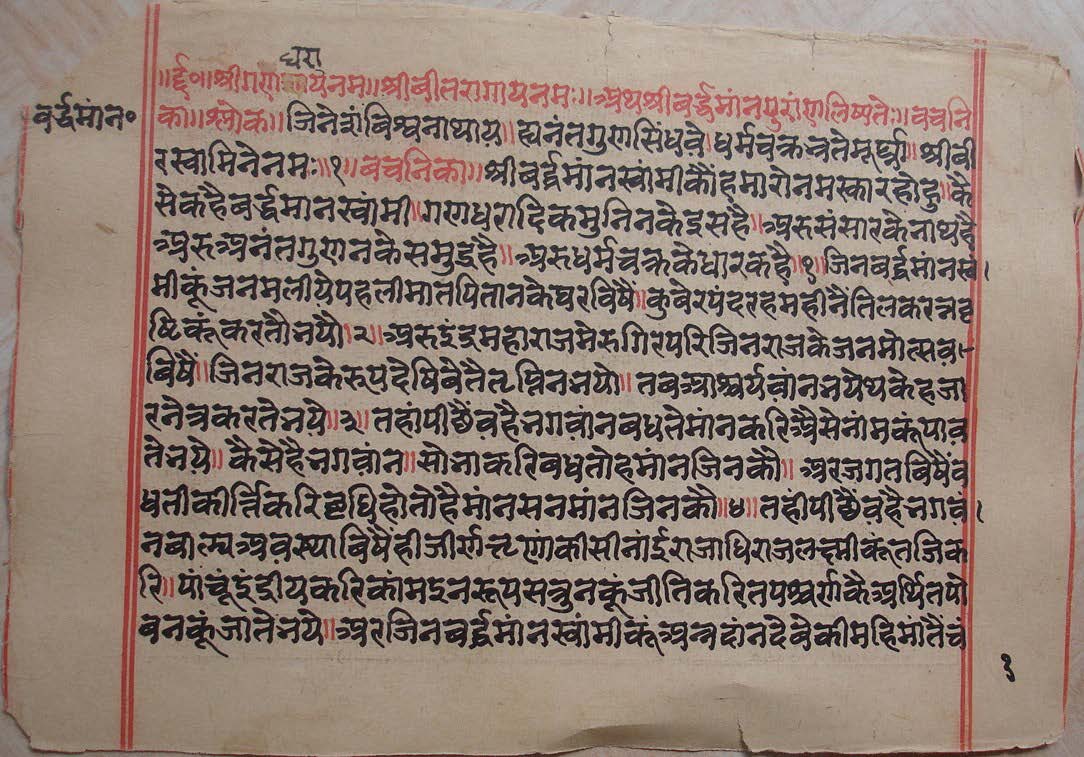 धरा
॥र्द्द०॥श्रीगणाधरायेनम॥श्रीबीतरागायनमः॥अथश्रीबर्द्धमांनपुरांणलिष्यतेः॥वचनि
बर्द्धमांन०
का॥श्लोक॥जिनेशंविश्वनाथाय॥ह्यनंतगुणसिंधवे॥धर्मचक्रभ्रतेमूर्घ्ना॥श्रीवी
रस्वामिनेनमः॥१॥बचनिका॥श्रीबर्द्धमांनस्वांमीकौंहमारोनमस्कारहोहु॥कै
सैकहैबर्द्धमानस्वांमी॥गणधरादिकमुनिनकेइसहै॥अरुसंसारकेनाथहै
अरुअनंतगुणनकेसमुद्रहै॥अरुधर्मचक्रकेधारकहै॥१॥जिनबर्द्धमांनस्वां।
मीकूंजनमलीयेपहलीमातपितानकेघरविषैं॥कुबेरपंदरहमहीनैंतिलकरत्नवृ
ष्टिकूंकरतौभयौ॥२॥अरुइंद्रमहाराजमेरुगिरपरिजिनराजकेजनमोत्सव
विषैं॥जिनराजकेरूपदेषिवेतैतृप्तिनभयो॥तबआश्चर्यवांनभयेथकेहजा
रनेत्रकरतेभये॥३॥तहांपीछैंवहैभगवांनबधतेमांनकरिअैसेनांमकूंपाव
तेभये॥कैसेहैभगवांन॥सोनाकरिबधतोहमांनजिनकौ॥अरजगतविषैंब
धतीकीर्त्तिकरिछधिहोतोहैमांनसनमांनजिनकौ॥४॥तहांपीछैंवहैभगवां।
नबाल्यअवस्थाविषैंहीजीर्णतृणकीसीनांईराजाधिराजलक्ष्मीकूंतजिक
रि॥पांचूंइंद्रीयकरिकांमइनरूपसत्रुनकूंजीतिकरितपश्चर्णकैअर्थितपो
बनकूंजातेभये॥अरजिनबर्द्धमांनस्वांमीकूंअन्नदांनदेवेकीमहिमांतैंचं
१